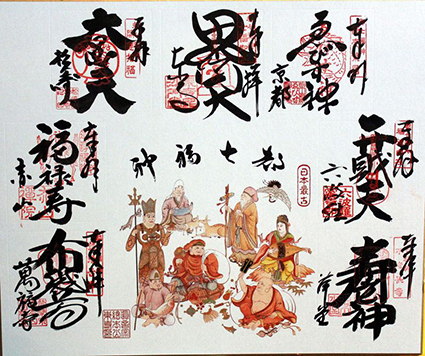 奉拝
ゑびす神
京都
奉拝
毘沙門天
東寺
奉拝
大黒天
松ヶ崎
都七福神
日本最古
奉拝
弁財天
六波羅
奉拝
寿老神
革堂
奉拝
福禄寿
赤山
奉拝
布袋尊
萬福寺